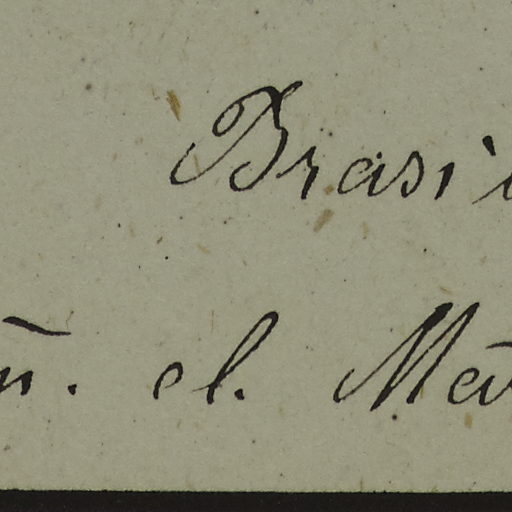 Brasi
n̄. el. Me